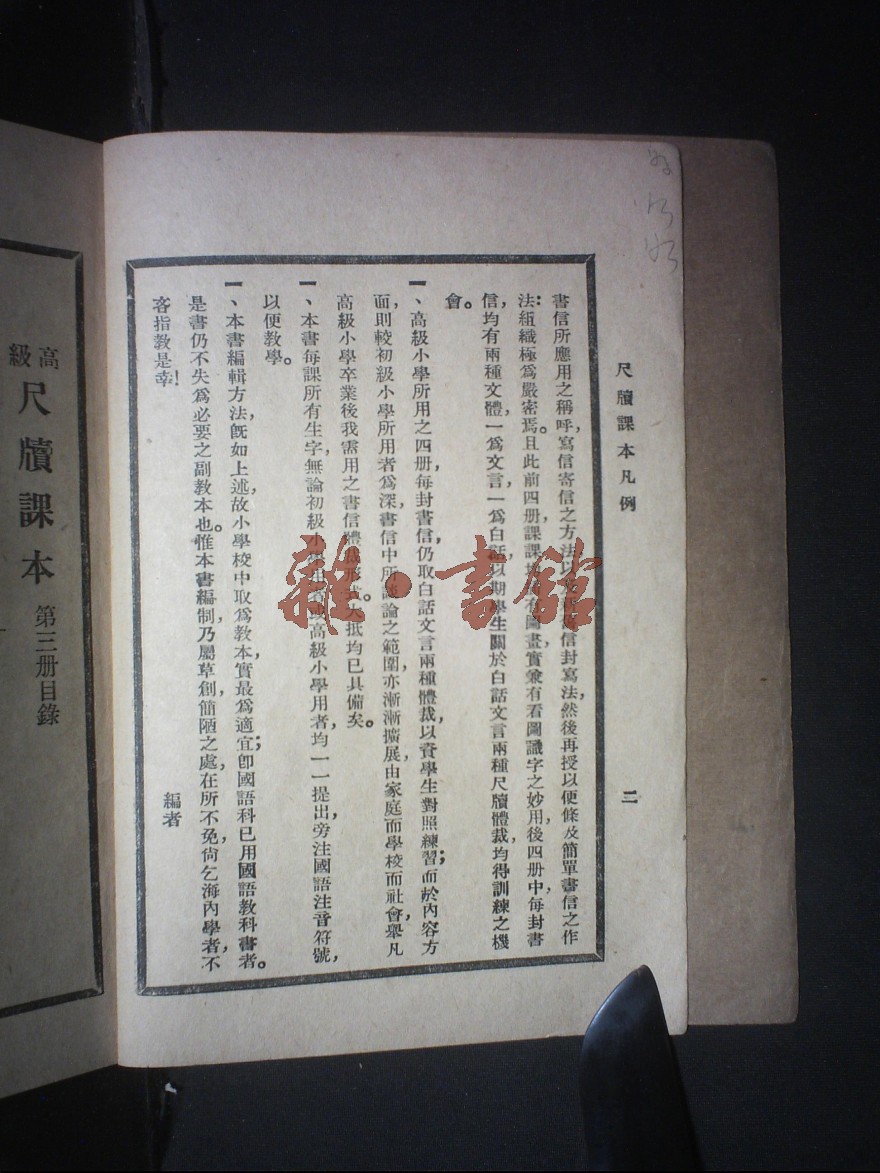 尺牘課本凡例
二
書信所應用之稱呼,寫信寄信之方法以及信封寫法,然後再授以便條及簡單書信之作
法:組織極為嚴密焉。且此前四册課課圖畫,實兼有看圖識字之妙用,後四册中,每封書
信,均有兩種文體,一為文言,一為白話,以期學生關於白話文言兩種尺牘體裁,均得訓練之機
會。
一、高級小學所用之四册,每封書信,仍取白話文言兩種體裁,以資學生對照練習;而於內容方
面,則較初級小學所用者為深,書信中所談論之範圍,亦漸漸擴展,由家庭而學校而社會,舉凡
高級小學卒業後我需用之書信體裁形式,大抵均已具備矣。
一、本書每課所有生字,無論初級小學用者或高級小學用者,均一一提出,旁注國語注音符號,
以便教學。
一、本書編輯方法,既如上述,故小學校中取為教本,實最為適宜;卽國語科已用國語教科書者。
是書仍不失為必要之副教本也。惟本書編制,乃屬草創,簡陋之處,在所不免,尙乞海內學者,不
吝指教是幸!
編者
高級
尺牘課本
第三册目錄
雜·書館